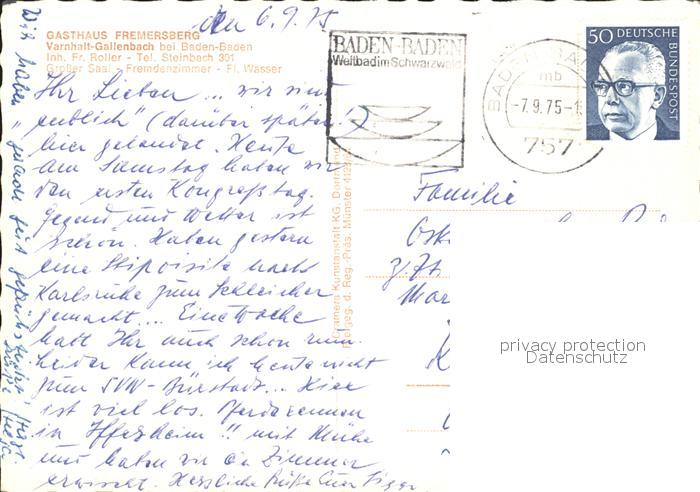 den 6.9.75
GASTHAUS FREMERSBERG
Varnhalt-Gallenbach bei Baden-Baden
Inh. Fr. Roller - Tel. Steinbach 301
Großer Saal - Fremdenzimmer - Fl. Wasser
BADEN-BADEN
Weltbad im Schwarzwald
BADEN-BADEN
mb
-7.9.75-1
757
50 DEUTSCHE
BUNDESPOST
Ihr Lieben ... wir sind
endlich" (darüber später!)
hier gelandet. Heute
am Samstag haben wir
den ersten Kongreßtag.
Gegend und Wetter ist
schön. Haben gestern
eine Stipvisite nach
Karlsruhe zum Schleicher
gemacht.... Eine Woche
habt Ihr auch schon rum.
Leider kann ich heute nicht
zum SVW - Bürstadt... Hier
ist viel los. Pferderennen
in Iffezheim!! mit Mühe
und haben wir ein Zimmer
erwischt. Herzliche Grüße Euer
Wir haben
Familie
Osk
z. Zt.
Mar
K
Cramers Kunstanstalt KG, Dortmund
Freigeg. d. Reg.-Präs. Münster
privacy protection
Datenschutz